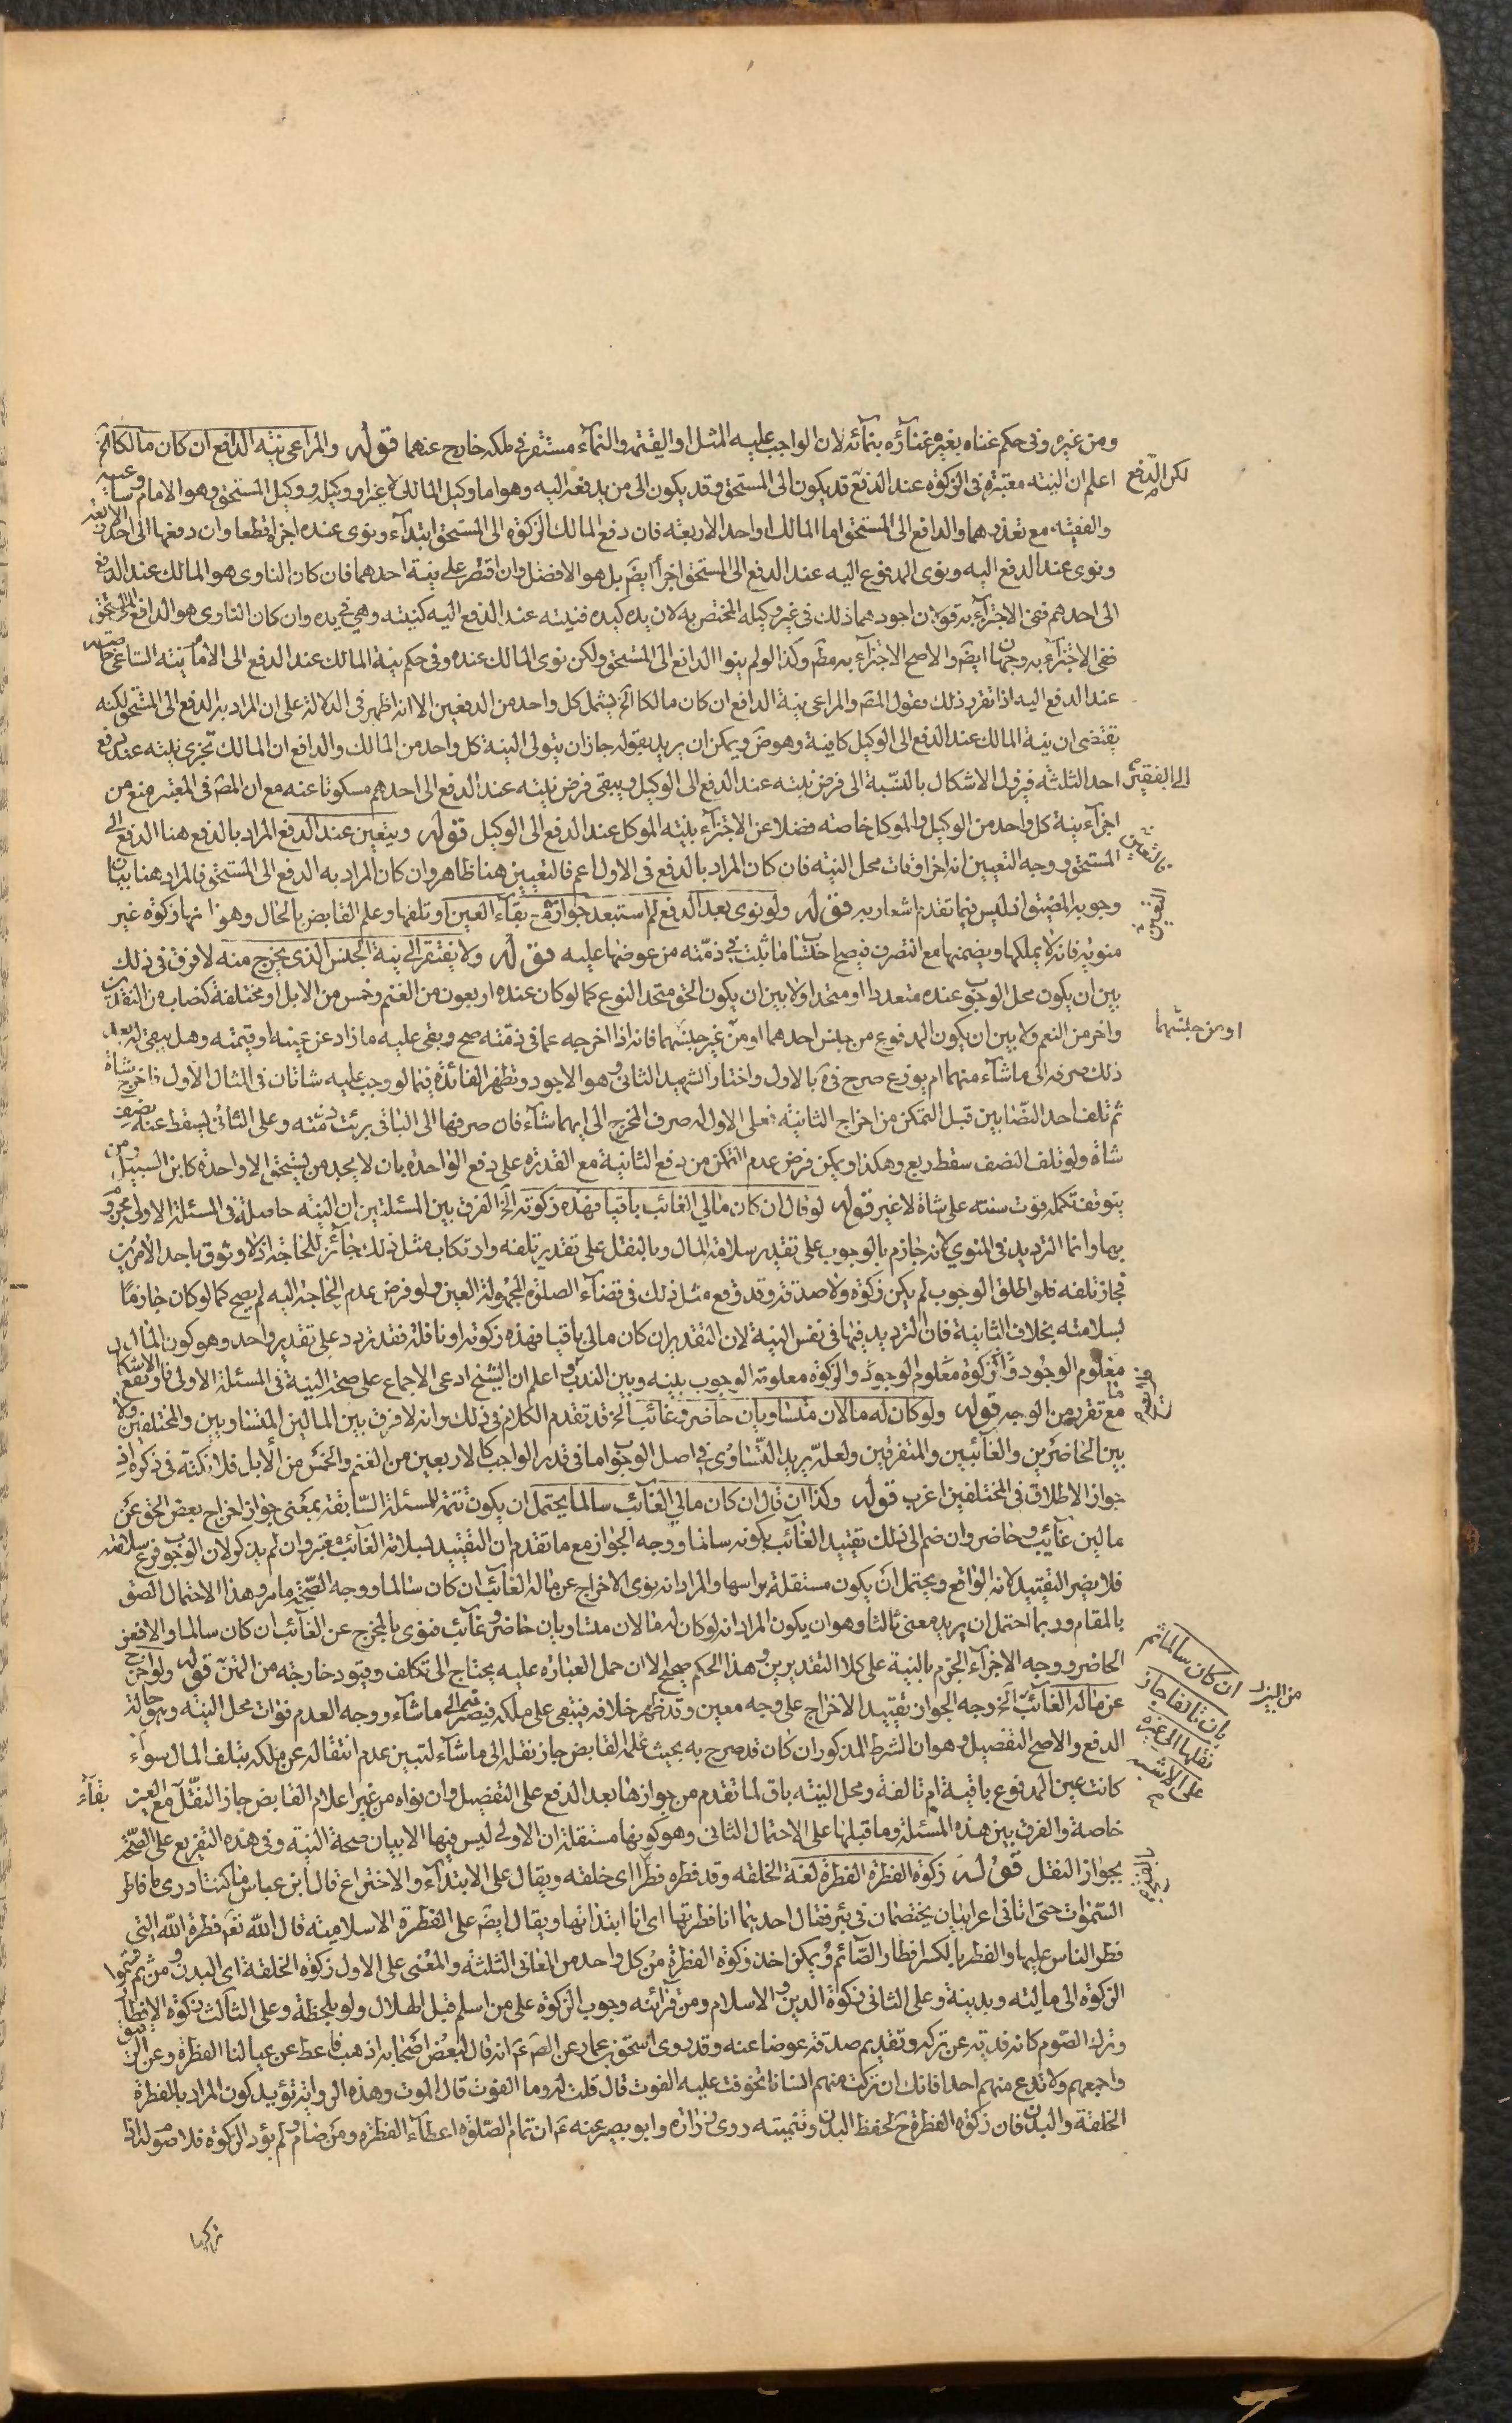 ومن غيره وفى حكم غناه بغيره غناؤه بنمائه لان الواجب عليه المثل او القيمة والنمآء مستقر فى ملكه خارج عنهما قوله والمراعى نية الدافع ان كان مالكا الخ
اعلم ان النية معتبرة فى الزكوة عند الدفع قد يكون الى المستحق وقد يكون الى من يدفعه اليه وهو اما وكيل المالك لا غير او وكيله ووكيل المستحق وهو الامام وساعيه
لكن الدفع
والفقيه مع تعذرهما والدافع الى المستحق اما المالك او احد الاربعة فان دفع المالك الزكوة الى المستحق ابتدآء ونوى عنده اجزأ قطعا وان دفعها الى احد الاربعة
ونوى عند الدفع اليه ونوى المدفوع اليه عند الدفع الى المستحق اجزأ ايضً بل هو الافضل وان اقتصر على نية احدهما فان كان الناوى هو المالك عند الدفع
الى احدهم ففى الاجتزآء به قولان اجودهما ذلك فى غير وكيله المختص به لان يده كيده فنيته عند الدفع اليه كنيته وهى فى يده وان كان الناوى هو الدافع الى المستحق
ففى الاجتزآء به وجهان ايضً والاصح الاجتزآء به مطً وكذا لو لم ينوا الدافع الى المستحق ولكن نوى المالك عنده وفى حكم نية المالك عند الدفع الى الامام نية الساعى خاصة
عند الدفع اليه اذا تقرر ذلك فقول المصً والمراعى نية الدافع ان كان مالكا الخ يشمل كل واحد من الدفعين الا انه اظهر فى الدلالة على ان المراد به الدفع الى المستحق لكنه
يقتضى ان نية المالك عند الدفع الى الوكيل كافية وهو ضً ويمكن ان يريد بقوله جاز ان يتولى النية كل واحد من المالك والدافع ان المالك تجزى نيته عند دفع
احد الثلثة فيزول الاشكال بالنسبة الى فرض نيته عند الدفع الى الوكيل ويبقى فرض نيته عند الدفع الى احدهم مسكوتا عنه مع ان المصً فى المعتبر منع من
الى الفقير
اجزآء نية كل واحد من الوكيل والموكل خاصة فضلا عن الاجتزآء بنية الموكل عند الدفع الى الوكيل قوله ويتعين عند الدفع المراد بالدفع هنا الدفع الى
المستحق ووجه التعيين انه اخر اوقات محل النية فان كان المراد بالدفع فى الاول اعم فالتعيين هنا ظاهر وان كان المراد به الدفع الى المستحق فالمراد هنا بيان
وجوبه المضيق اذ ليس فيما تقدم اشعار به قوله ولو نوى بعد الدفع لم استبعد جوازه مع بقآء العين او تلفها وعلم القابض بالحال وهو انها زكوة غير
التعيين
منوية فانه لا يملكها ويضمنها مع التصرف فيصح احتساب ما ثبت فى ذمته من عوضها عليه قوله ولا يفتقر الى نية الجنس الذى يخرج منه لا فرق فى ذلك
بين ان يكون محل الوجوب عنده متعددا او متحدا ولا بين ان يكون الحق متحد النوع كما لو كان عنده اربعون من الغنم وخمس من الابل او مختلفة كنصاب من النقدين
واخر من النعم ولا بين ان يكون المدفوع من جنس احدهما او من غير جنسهما فانه اذا اخرجه عما فى ذمته صح وبقى عليه ما زاد عن عينه او قيمته وهل يبقى له بعد
او من جنسهما
ذلك صرفه الى ما شآء منهما ام يوزع صرح فى ة بالاول واختار الشهيد الثانى وهو الاجود وتظهر الفائدة فيما لو وجب عليه شاتان فى المثال الاول فاخرج شاة
ثم تلف احد النصابين قبل التمكن من اخراج الثانية فعلى الاول له صرف المخرج الى ايهما شآء فان صرفها الى الباقى برئت ذمته وعلى الثانى يسقط عنه نصف
شاة ولو تلف النصف سقط ربع وهكذا ويمكن فرض عدم التمكن من دفع الثانية مع القدرة على دفع الواحدة بان لا يجد من يستحق الا واحدة كابن السبيل ومن
يتوقف تكمله قوت سنته على شاة لا غير قوله لو قال ان كان مالى الغائب باقيا فهذه زكوته الخ الفرق بين المسئلتين ان النية حاصلة فى المسئلة الاولى مجزوم
بها وانما الترديد فى المنوى لانه جازم بالوجوب على تقدير سلامة المال وبالنفل على تقدير تلفه وارتكاب مثل ذلك جائز للحاجة اذ لا وثوق باحد الامرين
فجاز تلفه فلو اطلق الوجوب لم يكن زكوة ولا صدقة وقد وقع مثل ذلك فى قضآء الصلوة المجهولة العين ولو فرض عدم الحاجة اليه لم يصح كما لو كان جازما
بسلامته بخلاف الثانية فان الترديد فيها فى نفس النية لان التقدير ان كان مالى باقيا فهذه زكوته او نافلة فقد تردد على تقدير واحد وهو كون المال
معلوم الوجود والزكوة معلومة الوجوب بينه وبين الندب واعلم ان الشيخ ادعى الاجماع على صحة النية فى المسئلة الاولى وارتفع الاشكال
مع تقرر من الوجه قوله ولو كان له مالان متساويان حاضر وغائب الخ قد تقدم الكلام فى ذلك وانه لا فرق بين المالين المتساويين والمختلفين ولا
بين الحاضرين والغآئبين والمتفرقين ولعله يريد التساوى فى اصل الوجوب اما فى قدر الواجب كالاربعين من الغنم والخمس من الابل فلا نكتة فى ذكره اذ
جواز الاطلاق فى المختلفين اغرب قوله وكذا ان قال ان كان مالى الغآئب سالما يحتمل ان يكون تتمة للمسئلة السابقة بمعنى جواز اخراج بعض الحق عن
مالين غآئب وحاضر وان ضم الى ذلك تقييد الغآئب بكونه سالما ووجه الجواز مع ما تقدم ان التقييد بسلامة الغآئب معتبر وان لم يذكر لان الوجوب فرع سلامته
فلا يضر التقييد لانه الواقع ويحتمل ان يكون مستقلة براسها والمراد انه نوى الاخراج عن ماله الغآئب ان كان سالما ووجه الصحة ما مر وهذا الاحتمال الصق
بالمقام وربما احتمل ان يريد معنى ثالثا وهو ان يكون المراد انه لو كان له مالان متساويان حاضر وغآئب فنوى بالمخرج عن الغآئب ان كان سالما والا فعن
الحاضر ووجه الاجزآء الجزم بالنية على كلا التقديرين وهذا الحكم صحيح الا ان حمل العبارة عليه يحتاج الى تكلف وقيود خارجة من المتن قوله ولو اخرج
ان كان سالما ثم
بان تالفا جاز
نقلها الى غيره
على الاشبه
عن ماله الغآئب الخ وجه الجواز تقييد الاخراج على وجه معين وقد ظهر خلافه فيبقى على ملكه فيصرفه الى ما شآء ووجه العدم فوات محل النية وهو حالة
الدفع والاصح التفصيل وهو ان الشرط المذكور ان كان قد صرح به بحيث علمه القابض جاز نقله الى ما شآء لتبين عدم انتقاله عن ملكه بتلف المال سوآء
كانت عين المدفوع باقية ام تالفة ومحل النية باق لما تقدم من جوازها بعد الدفع على التفصيل وان نواه من غير اعلام القابض جاز النقل مع العين
بقآء
خاصة والفرق بين هذه المسئلة وما قبلها على الاحتمال الثانى وهو كونها مستقلة ان الاولى ليس فيها الا بيان صحة النية وفى هذه التفريع على الصحة
بجواز النقل قوله زكوة الفطرة الفطرة لغة الخلقه وقد فطره فطرا اى خلقه ويقال على الابتدآء والاختراع قال ابن عباس ما كنت ادرى ما فاطر
السموات حتى اتانى اعرابيان يختصمان فى بئر فقال احدهما انا فطرتها اى انا ابتداتها ويقال ايضً على الفطرة الاسلامية قال الله تعً فطرة الله التى
فطر الناس عليها والفطر بالكسر افطار الصآئم ويمكن اخذ زكوة الفطرة من كل واحد من المعانى الثلثة والمعنى على الاول زكوة الخلقة اى البدن ومن ثم قسموا
الزكوة الى مالية وبدنية وعلى الثانى زكوة الدين والاسلام ومن قرآئنه وجوب الزكوة على من اسلم قبل الهلال ولو بلحظة وعلى الثالث زكوة الافطار
وترك الصوم كانه فدية عن تركه وتقديم صدقة عوضا عنه وقد روى اسحق بن عمار عن الصً عً انه قال لبعض اصحابه اذهب فاعط عن عيالنا الفطرة وعن الرقيق
واجمعهم ولا تدع منهم احدا فانك ان تركت منهم انسانا تخوفت عليه الفوت قال قلت له وما الفوت قال الموت وهذه الرواية تؤيد كون المراد بالفطرة
الخلقة والبدن فان زكوة الفطرة حً لحفظ البدن وتنميته روى زرارة وابو بصير عنه عً ان تمام الصلوة اعطآء الفطرة ومن صام ولم يؤد الزكوة فلا صوم له اذا
تركها